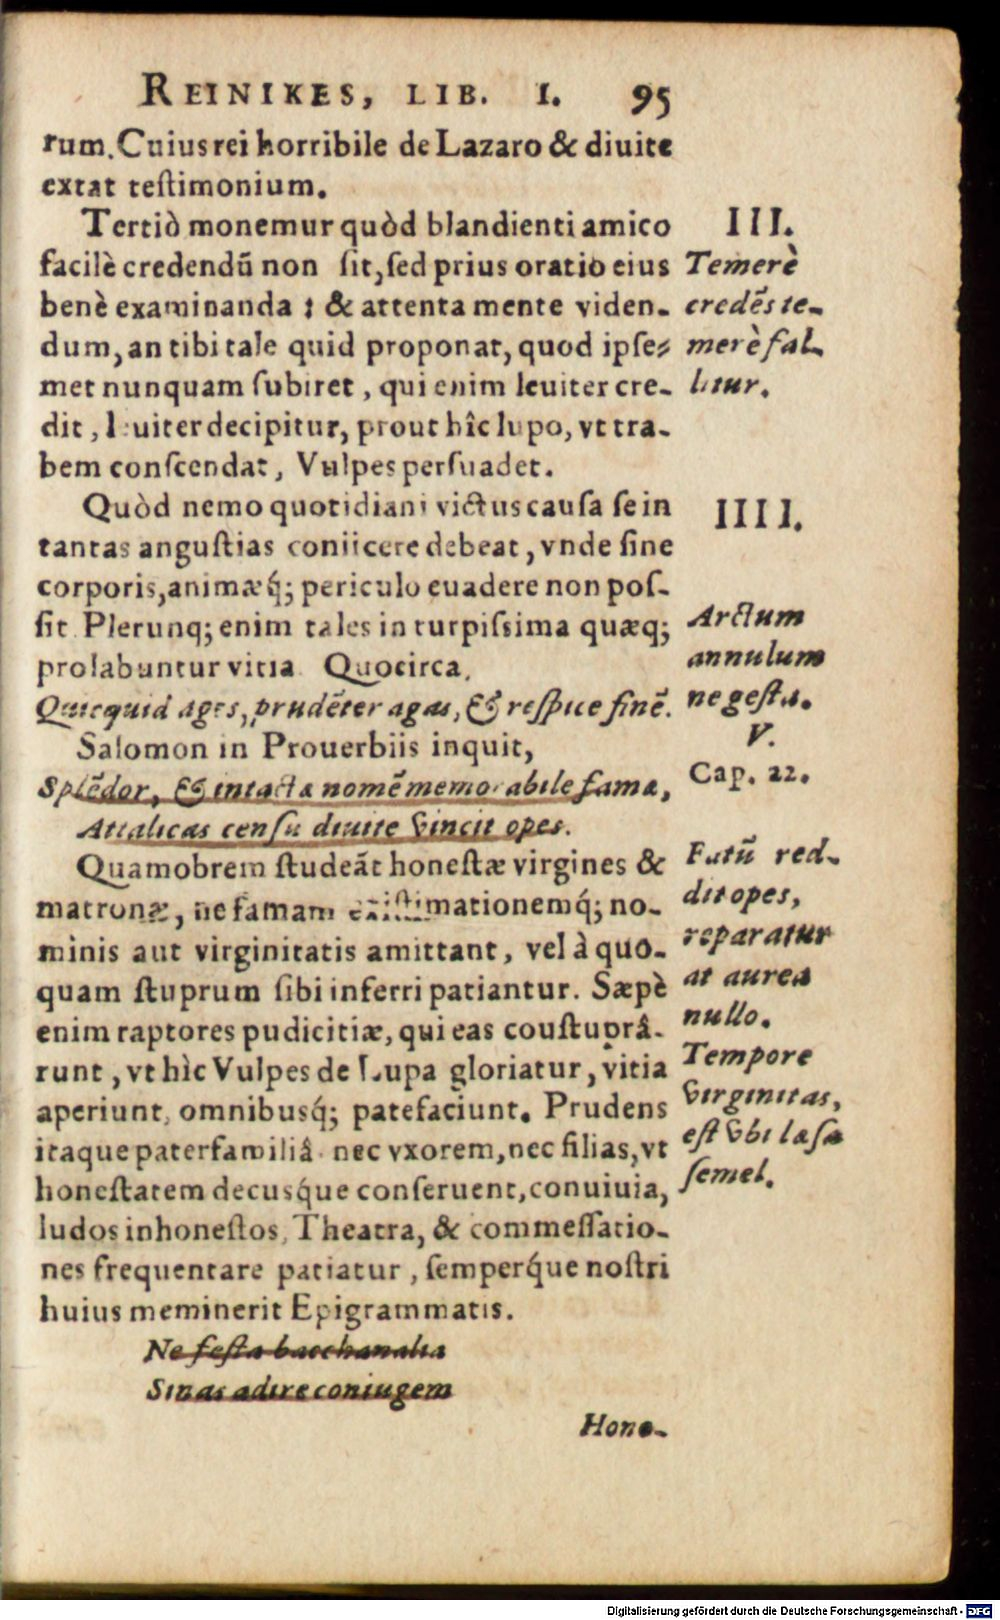 REINIKES, LIB. I. 95
rum. Cuius rei horribile de Lazaro & diuite
extat testimonium.
Tertiò monemur quòd blandienti amico
facilè credendū non sit, sed prius oratio eius
benè examinanda : & attenta mente viden-
dum, an tibi tale quid proponat, quod ipse-
met nunquam subiret, qui enim leuiter cre-
dit, leuiter decipitur, prout hîc lupo, vt tra-
bem conscendat, Vulpes persuadet.
Quòd nemo quotidiani victus causa se in
tantas angustias coniicere debeat, vnde sine
corporis, animæq́; periculo euadere non pos-
sit Plerunq; enim tales in turpissima quæq;
prolabuntur vitia Quocirca,
Quicquid ages, prudēter agas, & respice finē.
Salomon in Prouerbiis inquit,
Splēdor, & intacta nomē memorabile famæ,
Attalicas censu diuite vincit opes.
Quamobrem studeāt honestæ virgines &
matronæ, ne famam existimationemq́; no-
minis aut virginitatis amittant, vel à quo-
quam stuprum sibi inferri patiantur. Sæpè
enim raptores pudicitiæ, qui eas coustuprâ-
runt, vt hìc Vulpes de Lupa gloriatur, vitia
aperiunt, omnibusq́; patefaciunt. Prudens
itaque paterfamiliâ nec vxorem, nec filias, vt
honestatem decusq́ue conseruent, conuiuia,
ludos inhonestos, Theatra, & commessatio-
nes frequentare patiatur, semperq́ue nostri
huius meminerit Epigrammatis.
Ne festa bacchanalia
Sinas adire coniugem
Hone-
III.
Temerè
credēs te-
merè fal-
litur.
IIII.
Arctum
annulum
ne gesta.
V.
Cap. 22.
Fatū red-
dit opes,
reparatur
at aurea
nullo.
Tempore
virginitas,
est vbi læsa
semel.
Digitalisierung gefördert durch die Deutsche Forschungsgemeinschaft - DFG